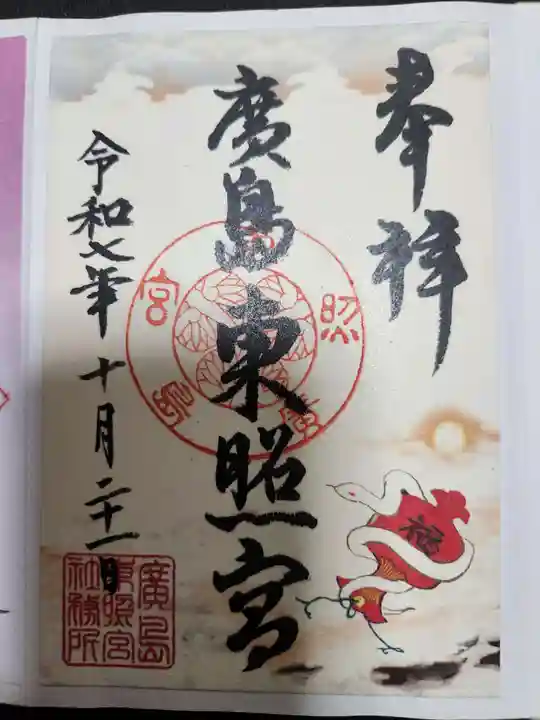 奉拝
廣島東照宮
令和七年十月二十一日
福
廣島
東照宮
社務所